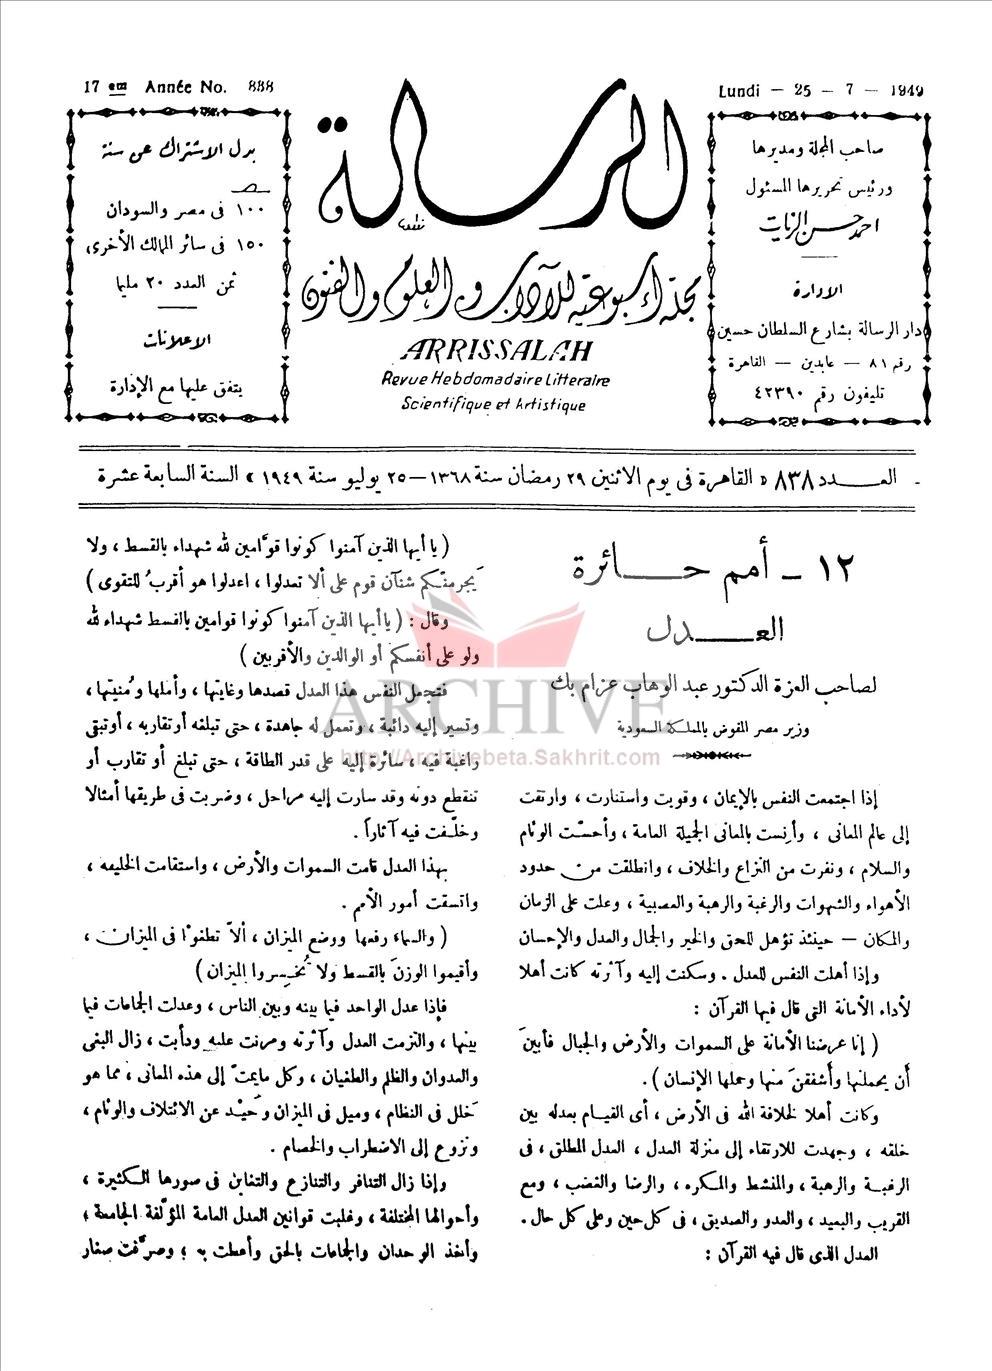 17 em Année No. 838
Lundi - 25 - 7 - 1949
صاحب المجلة ومديرها
ورئيس تحريرها المسئول
احمد حسن الزيات
الادارة
دار الرسالة بشارع السلطان حسين
رقم ٨١ — عابدين — القاهرة
تليفون رقم ٤٢٣٩٠
الرسالة
مجلة أسبوعية للآداب والعلوم والفنون
ARRISSALAH
Revue Hebdomadaire Litteraire
Scientifique et Artistique
بدل الاشتراك عن سنة
١٠٠ فى مصر والسودان
١٥٠ فى سائر الممالك الأخرى
ثمن العدد ٢٠ مليما
الاعلانات
يتفق عليها مع الإدارة
العـــدد ٨٣٨ « القاهرة فى يوم الاثنين ٢٩ رمضان سنة ١٣٦٨ — ٢٥ يوليو سنة ١٩٤٩ » السنة السابعة عشرة
١٢ - أمم حـــائرة
العـــدل
لصاحب العزة الدكتور عبد الوهاب عزام بك
وزير مصر المفوض بالمملكة السعودية
إذا اجتمعت النفس بالإيمان ، وقويت واستنارت ، وارتقت
إلى عالم المعانى ، وأنست بالمعانى الجميلة العامة ، وأحسّت الوئام
والسلام ، ونفرت من النزاع والخلاف ، وانطلقت من حدود
الأهواء والشهوات والرغبة والرهبة والعصبية ، وعلت على الزمان
والمكان — حينئذ تؤهل للحق والخير والجمال والعدل والإحسان
وإذا أهلت النفس للعدل . وسكنت إليه وآثرته كانت أهلا
لأداء الأمانة التى قال فيها القرآن :
( إنا عرضنا الأمانة على السموات والأرض والجبال فأبينَ
أن يحملنها وأشفقنَ منها وحملها الإنسان ) .
وكانت أهلا لخلافة الله فى الأرض ، أى القيام بعدله بين
خلقه ، وجهدت للارتقاء إلى منزلة العدل ، العدل المطلق ، فى
الرغبة والرهبة ، والمنشط والمكره ، والرضا والغضب ، ومع
القريب والبعيد ، والعدو والصديق ، فى كل حين وعلى كل حال .
العدل الذى قال فيه القرآن :
( يا أيها الذين آمنوا كونوا قوّامين لله شهداء بالقسط ، ولا
يجرمنّكم شنآن قوم على ألا تعدلوا ، اعدلوا هو أقربُ للتقوى )
وقال : ( يا أيها الذين آمنوا كونوا قوامين بالقسط شهداء لله
ولو على أنفسكم أو الوالدين والأقربين )
فتجعل النفس هذا العدل قصدها وغايتها ، وأملها ومُنيتها ،
وتسير إليه دائبة ، وتعمل له جاهدة ، حتى تبلغه أو تقاربه ، أو تبقى
راغبة فيه ، سائرة إليه على قدر الطاقة ، حتى تبلغ أو تقارب أو
تنقطع دونه وقد سارت إليه مراحل ، وضربت فى طريقها أمثالا
وخلّفت فيه آثاراً .
بهذا العدل قامت السموات والأرض ، واستقامت الخليقه ،
واتسقت أمور الأمم .
( والسماء رفعها ووضع الميزان ، ألاّ تطغوْا فى الميزان ،
وأقيموا الوزنَ بالقسط ولا تُخسِروا الميزان )
فإذا عدل الواحد فيما بينه وبين الناس ، وعدلت الجماعات فيما
بينها ، والتزمت العدل وآثرته ومرنت عليه ودأبت ، زال البغى
والعدوان والظلم والطغيان ، وكل ما يمتّ إلى هذه المعانى ، مما هو
خلل فى النظام ، وميل فى الميزان وحَيْد عن الائتلاف والوئام ،
ونزوع إلى الاضطراب والخصام .
وإذا زال التدافر والتنازع والتغابن فى صورها الكثيرة ،
وأحوالها المختلفة ، وغلبت قوانين العدل العامة المؤلّفة الجامعة ؛
وأخذ الوحدان والجماعات بالحق وأعطت به ؛ وصرّفت صغار
ARCHIVE
http://Archivebeta.Sakhrit.com